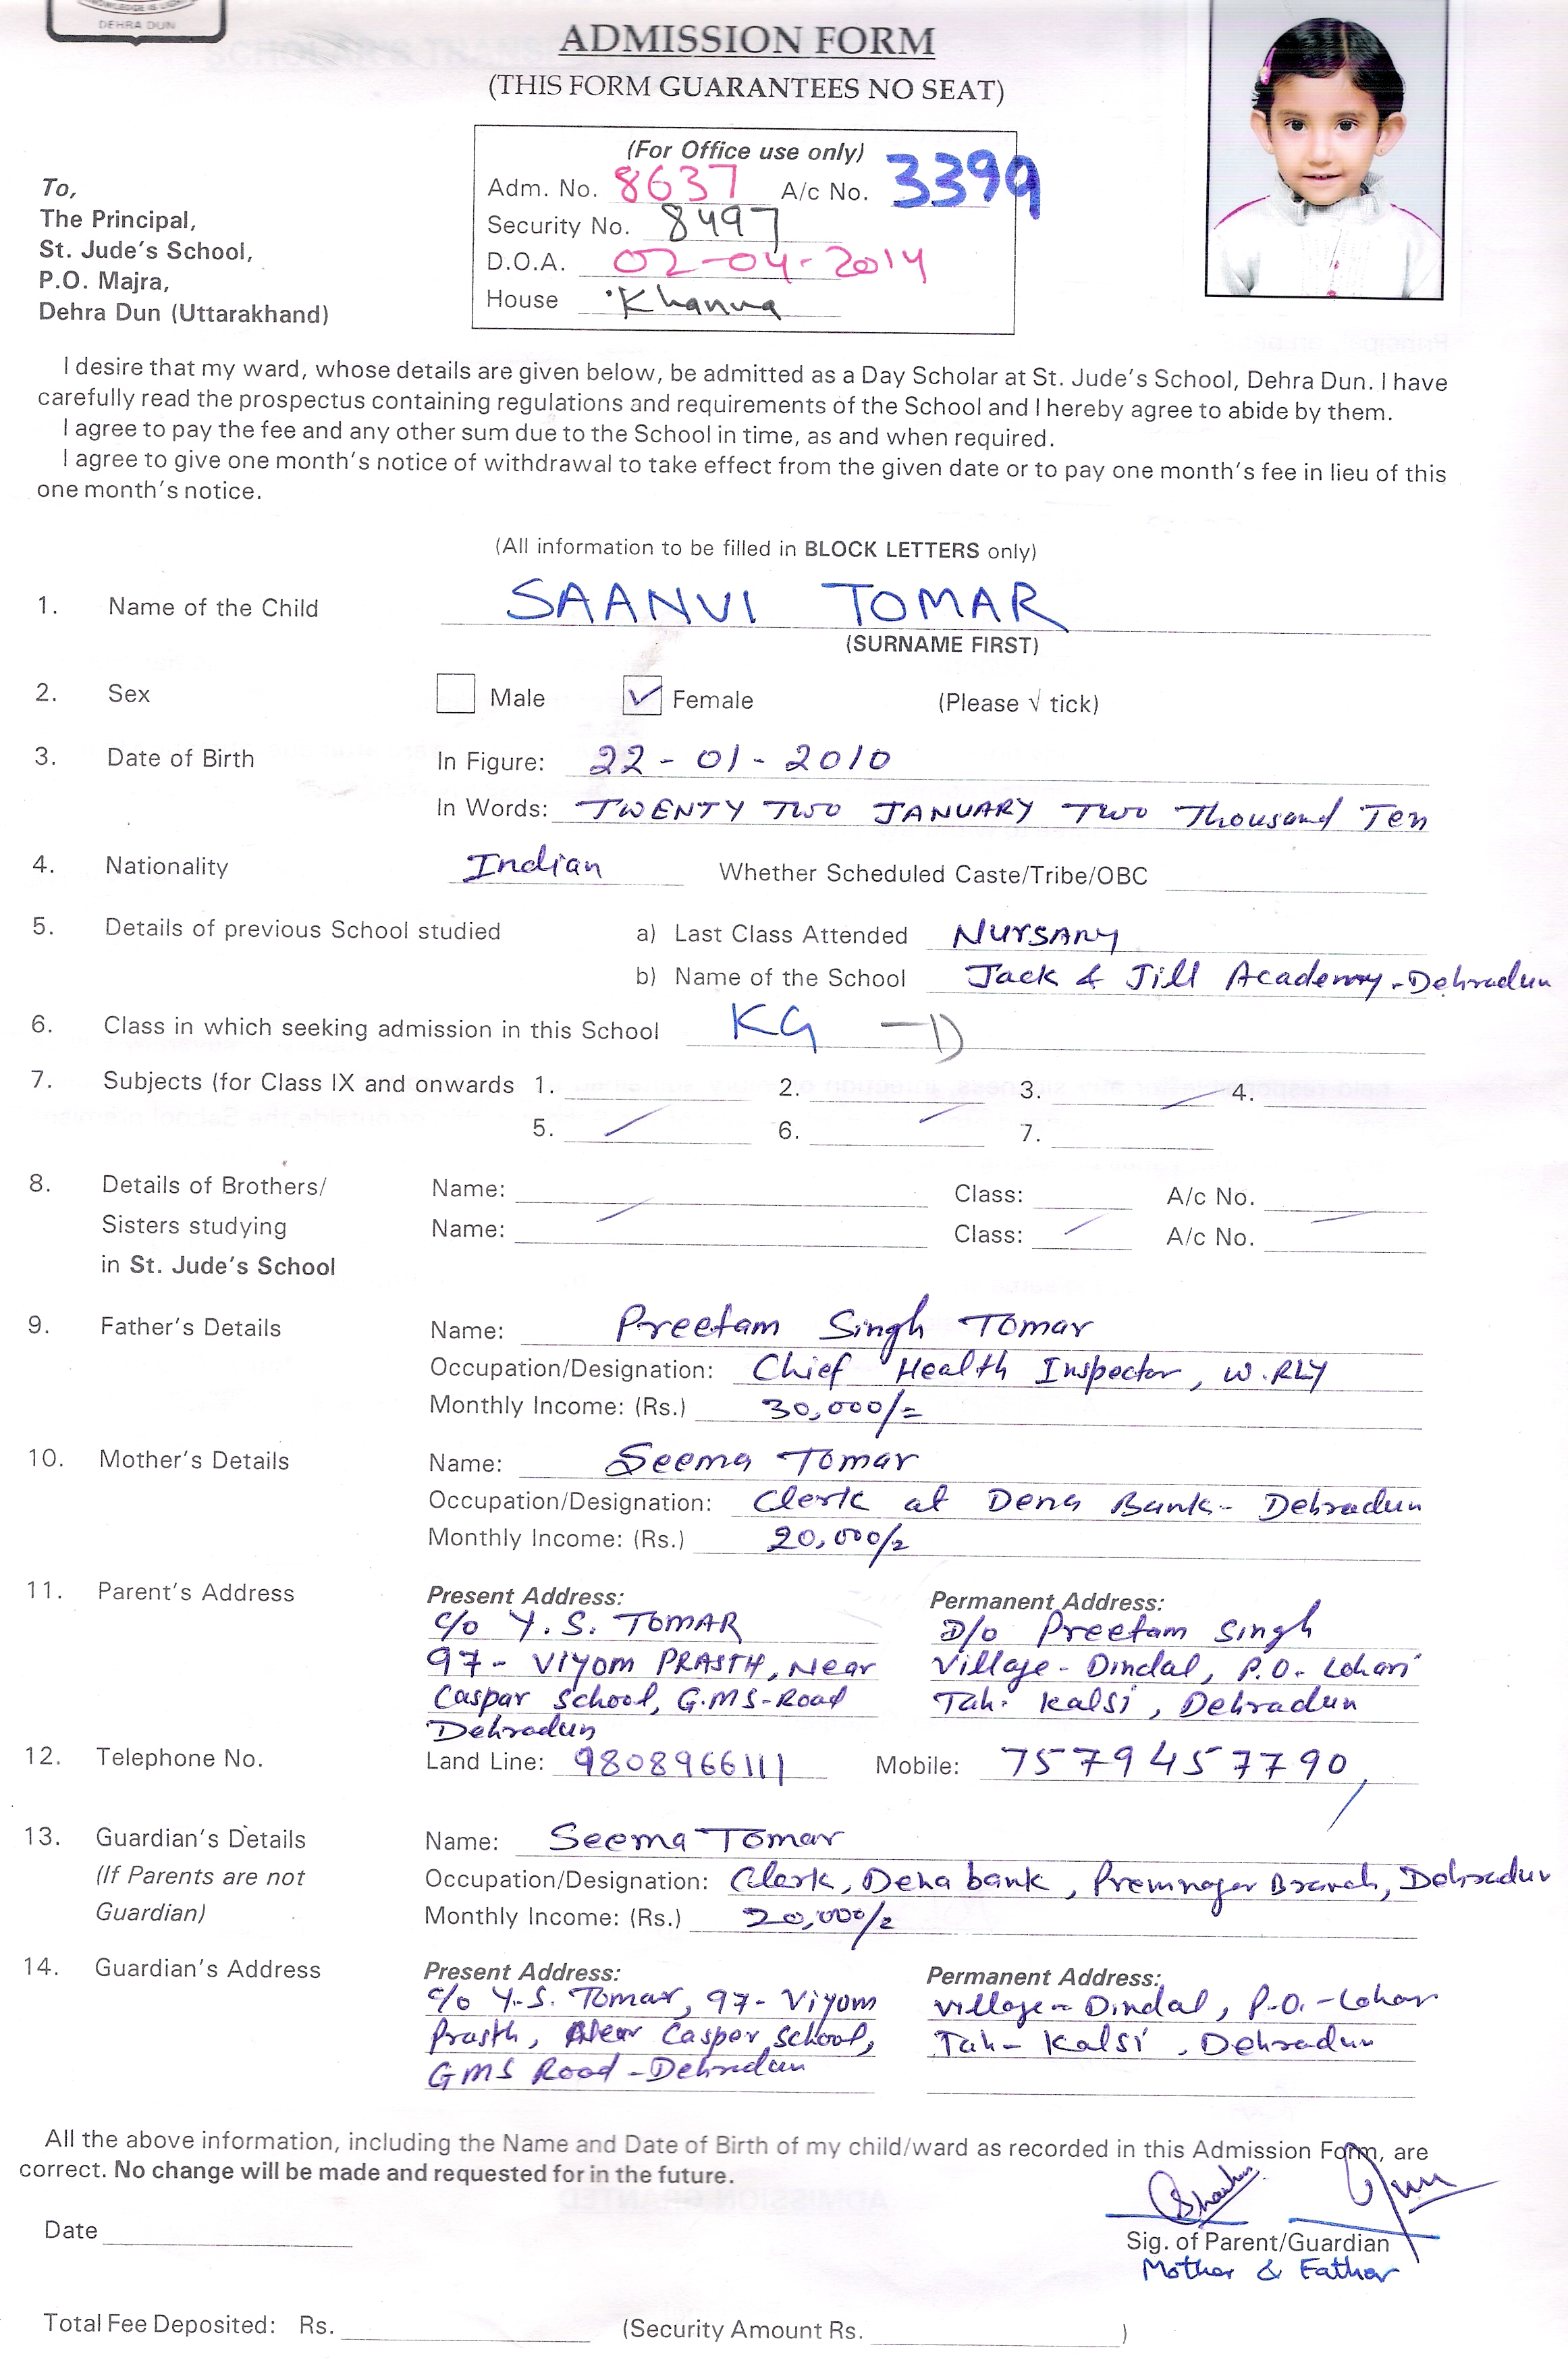 KNOWLEDGE IS LIGHT
DEHRA DUN
ADMISSION FORM
(THIS FORM GUARANTEES NO SEAT)
(For Office use only)
Adm. No. 8637 A/c No. 3399
Security No. 8497
D.O.A. 02-04-2014
House Khanna
To,
The Principal,
St. Jude's School,
P.O. Majra,
Dehra Dun (Uttarakhand)
I desire that my ward, whose details are given below, be admitted as a Day Scholar at St. Jude's School, Dehra Dun. I have
carefully read the prospectus containing regulations and requirements of the School and I hereby agree to abide by them.
I agree to pay the fee and any other sum due to the School in time, as and when required.
I agree to give one month's notice of withdrawal to take effect from the given date or to pay one month's fee in lieu of this
one month's notice.
(All information to be filled in BLOCK LETTERS only)
1. Name of the Child SAANVI TOMAR
(SURNAME FIRST)
2. Sex Male ✓ Female (Please √ tick)
3. Date of Birth In Figure: 22-01-2010
In Words: TWENTY TWO JANUARY TWO Thousand Ten
4. Nationality Indian Whether Scheduled Caste/Tribe/OBC
5. Details of previous School studied a) Last Class Attended NURSANY
b) Name of the School Jack & Jill Academy-Dehradun
6. Class in which seeking admission in this School KG - D
7. Subjects (for Class IX and onwards 1. 2. 3. 4.
5. 6. 7.
8. Details of Brothers/ Name: Class: A/c No.
Sisters studying Name: Class: A/c No.
in St. Jude's School
9. Father's Details Name: Preetam Singh Tomar
Occupation/Designation: Chief Health Inspector, W.RLY
Monthly Income: (Rs.) 30,000/=
10. Mother's Details Name: Seema Tomar
Occupation/Designation: Clerk at Dena Bank- Dehradun
Monthly Income: (Rs.) 20,000/=
11. Parent's Address Present Address: Permanent Address:
C/o Y.S. TOMAR D/o Preetam Singh
97- VIYOM PRASTH, Near Village- Dindal, P.O- Lohari
Caspar School, G.MS-Road Tah. Kalsi, Dehradun
Dehradun
12. Telephone No. Land Line: 9808966111 Mobile: 75794577790
13. Guardian's Details Name: Seema Tomar
(If Parents are not Occupation/Designation: Clerk, Dena bank, Premnager Branch, Dehradun
Guardian) Monthly Income: (Rs.) 20,000/=
14. Guardian's Address Present Address: Permanent Address:
C/o Y.S. Tomar, 97- Viyom Village- Dindal, P.O.-Lohar
Prasth, Near Casper School, Tah- Kalsi, Dehradun
GMS Road -Dehradun
All the above information, including the Name and Date of Birth of my child/ward as recorded in this Admission Form, are
correct. No change will be made and requested for in the future.
Date
Sig. of Parent/Guardian
Mother & Father
Total Fee Deposited: Rs. (Security Amount Rs. )